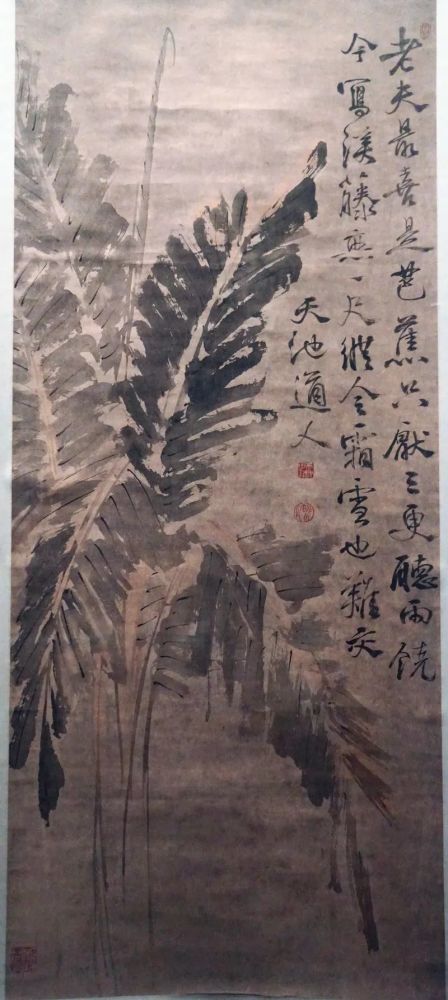 老夫最喜是芭蕉只厭三更聽雨饒
今寫溪籐無一尺縱令霜雪也難交
天池道人